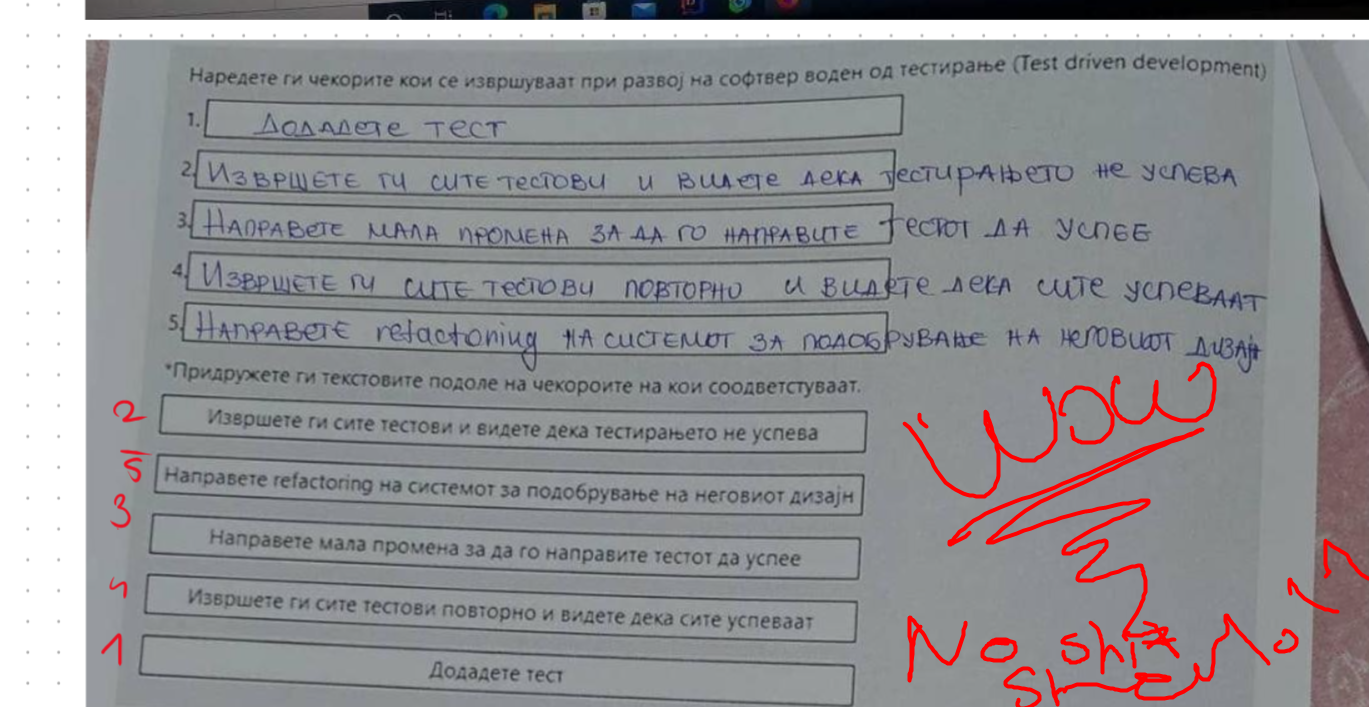 Наредете ги чекорите кои се извршуваат при развој на софтвер воден од тестирање (Test driven development)
1. Додадете тест
2. Извршете ги сите тестови и видете дека тестирањето не успева
3. Направете мала промена за да го направите тестот да успее
4. Извршете ги сите тестови повторно и видете дека сите успеваат
5. Направете refactoring на системот за подобрување на неговиот дизајн
*Придружете ги текстовите подоле на чекороите на кои соодветствуваат.
2 Извршете ги сите тестови и видете дека тестирањето не успева
5 Направете refactoring на системот за подобрување на неговиот дизајн
3 Направете мала промена за да го направите тестот да успее
4 Извршете ги сите тестови повторно и видете дека сите успеваат
1 Додадете тест
WOW
No shit